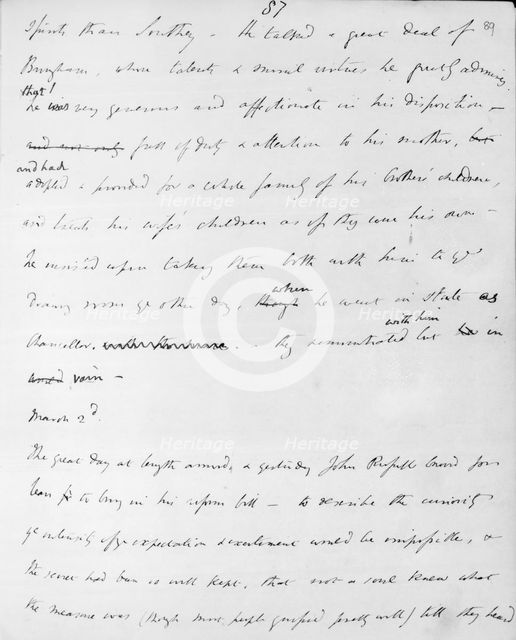 87
89
spirits than Southey – He talked a great deal of
Brougham, whose talents & moral virtues he greatly admires.
that!
he was very generous and affectionate in his disposition –
and not only full of duty & attention to his mother, but
and had
adopted & provided for a whole family of his brother's children,
and treats his wife's children as if they were his own –
he insisted upon taking them both with him to ye
when
Drawing room ye other day, though he went in state as
with him
Chancellor, – they remonstrated but in
vain –
March 2d.
The great day at length arrived, & yesterday John Russell moved for
leave to bring in his reform bill – to describe the curiosity
ye intensity of ye expectation & excitement would be impossible, &
the secret had been so well kept, that not a soul knew what
the measure was (though most people guessed pretty well) till they heard
Heritage
Heritage
Heritage
Heritage
Heritage
Heritage
C